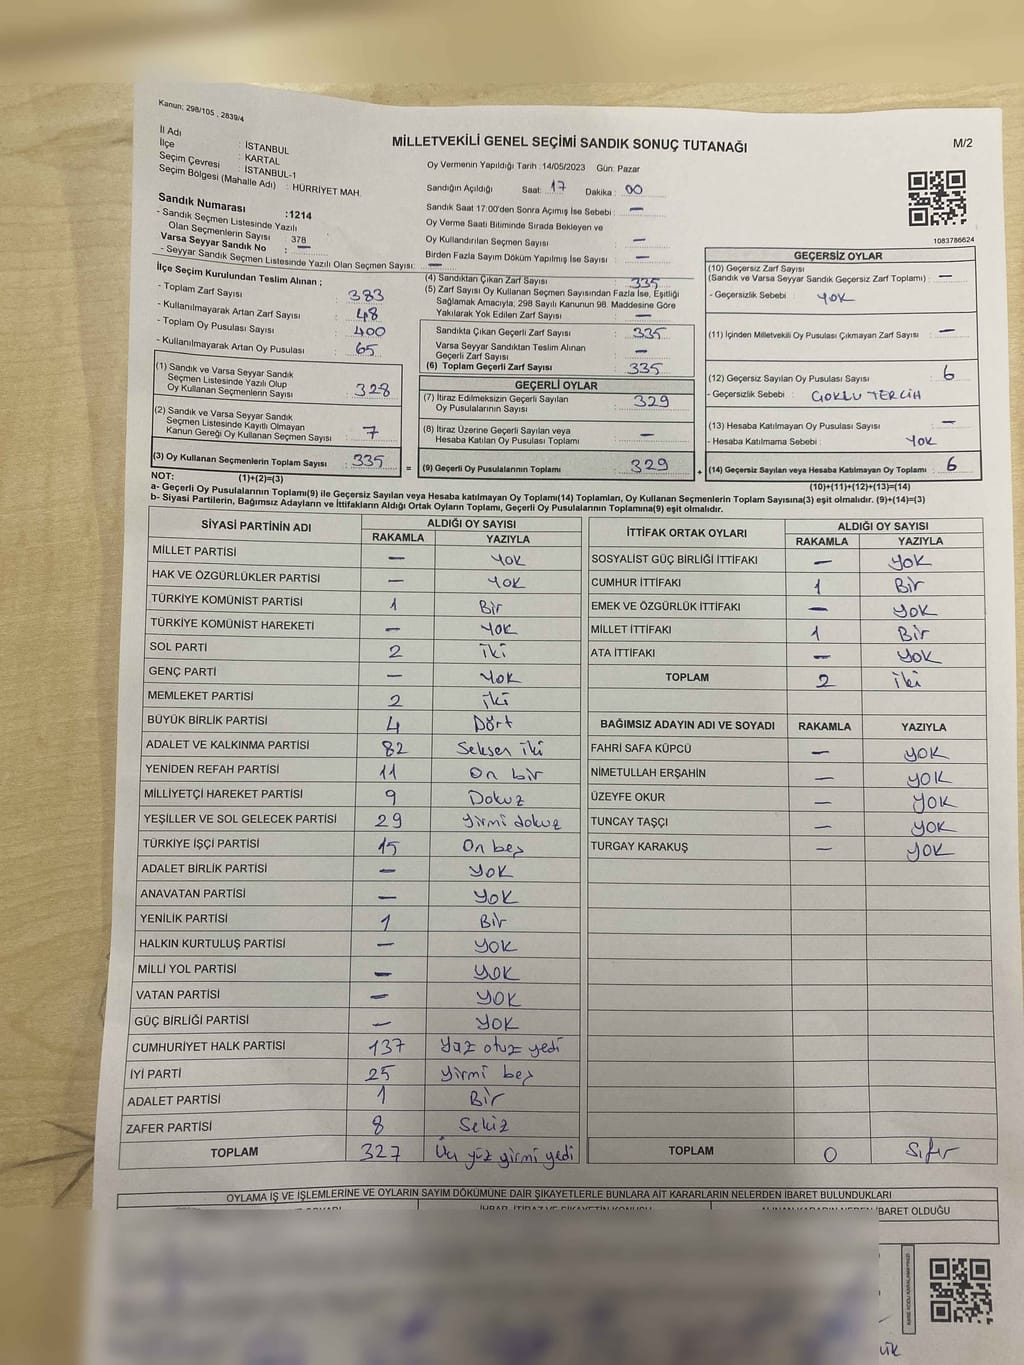 Kanun: 298/105 , 2839/4
MİLLETVEKİLİ GENEL SEÇİMİ SANDIK SONUÇ TUTANAĞI
M/2
İl Adı : İSTANBUL
İlçe : KARTAL
Seçim Çevresi : İSTANBUL-1
Seçim Bölgesi (Mahalle Adı) : HÜRRİYET MAH.
Sandık Numarası :1214
- Sandık Seçmen Listesinde Yazılı
Olan Seçmenlerin Sayısı : 378
Varsa Seyyar Sandık No : —
- Seyyar Sandık Seçmen Listesinde Yazılı Olan Seçmen Sayısı: —
Oy Vermenin Yapıldığı Tarih :14/05/2023 Gün: Pazar
Sandığın Açıldığı Saat: 17 Dakika : 00
Sandık Saat 17:00'den Sonra Açımış İse Sebebi : —
Oy Verme Saati Bitiminde Sırada Bekleyen ve
Oy Kullandırılan Seçmen Sayısı : —
Birden Fazla Sayım Döküm Yapılmış İse Sayısı : —
1083786624
İlçe Seçim Kurulundan Teslim Alınan ;
- Toplam Zarf Sayısı : 383
- Kullanılmayarak Artan Zarf Sayısı : 48
- Toplam Oy Pusulası Sayısı : 400
- Kullanılmayarak Artan Oy Pusulası : 65
(1) Sandık ve Varsa Seyyar Sandık
Seçmen Listesinde Yazılı Olup
Oy Kullanan Seçmenlerin Sayısı : 328
(2) Sandık ve Varsa Seyyar Sandık
Seçmen Listesinde Kayıtlı Olmayan
Kanun Gereği Oy Kullanan Seçmen Sayısı : 7
(3) Oy Kullanan Seçmenlerin Toplam Sayısı : 335
(1)+(2)=(3)
(4) Sandıktan Çıkan Zarf Sayısı : 335
(5) Zarf Sayısı Oy Kullanan Seçmen Sayısından Fazla İse, Eşitliği
Sağlamak Amacıyla; 298 Sayılı Kanunun 98. Maddesine Göre
Yakılarak Yok Edilen Zarf Sayısı : —
Sandıkta Çıkan Geçerli Zarf Sayısı : 335
Varsa Seyyar Sandıktan Teslim Alınan
Geçerli Zarf Sayısı : —
(6) Toplam Geçerli Zarf Sayısı : 335
GEÇERLİ OYLAR
(7) İtiraz Edilmeksizin Geçerli Sayılan
Oy Pusulalarının Sayısı : 329
(8) İtiraz Üzerine Geçerli Sayılan veya
Hesaba Katılan Oy Pusulası Toplamı : —
= (9) Geçerli Oy Pusulalarının Toplamı : 329 +
GEÇERSİZ OYLAR
(10) Geçersiz Zarf Sayısı
(Sandık ve Varsa Seyyar Sandık Geçersiz Zarf Toplamı) : —
- Geçersizlik Sebebi : YOK
(11) İçinden Milletvekili Oy Pusulası Çıkmayan Zarf Sayısı : —
(12) Geçersiz Sayılan Oy Pusulası Sayısı : 6
- Geçersizlik Sebebi : ÇOKLU TERCİH
(13) Hesaba Katılmayan Oy Pusulası Sayısı : —
- Hesaba Katılmama Sebebi : YOK
(14) Geçersiz Sayılan veya Hesaba Katılmayan Oy Toplamı : 6
(10)+(11)+(12)+(13)=(14)
NOT:
a- Geçerli Oy Pusulalarının Toplamı(9) ile Geçersiz Sayılan veya Hesaba katılmayan Oy Toplamı(14) Toplamları, Oy Kullanan Seçmenlerin Toplam Sayısına(3) eşit olmalıdır. (9)+(14)=(3)
b- Siyasi Partilerin, Bağımsız Adayların ve İttifakların Aldığı Ortak Oyların Toplamı, Geçerli Oy Pusulalarının Toplamına(9) eşit olmalıdır.
SİYASİ PARTİNİN ADI ALDIĞI OY SAYISI
RAKAMLA YAZIYLA
MİLLET PARTİSİ — YOK
HAK VE ÖZGÜRLÜKLER PARTİSİ — YOK
TÜRKİYE KOMÜNİST PARTİSİ 1 Bir
TÜRKİYE KOMÜNİST HAREKETİ — YOK
SOL PARTİ 2 iki
GENÇ PARTİ — YOK
MEMLEKET PARTİSİ 2 iki
BÜYÜK BİRLİK PARTİSİ 4 Dört
ADALET VE KALKINMA PARTİSİ 82 Seksen iki
YENİDEN REFAH PARTİSİ 11 On bir
MİLLİYETÇİ HAREKET PARTİSİ 9 Dokuz
YEŞİLLER VE SOL GELECEK PARTİSİ 29 Yirmi dokuz
TÜRKİYE İŞÇİ PARTİSİ 15 On beş
ADALET BİRLİK PARTİSİ — YOK
ANAVATAN PARTİSİ — YOK
YENİLİK PARTİSİ 1 Bir
HALKIN KURTULUŞ PARTİSİ — YOK
MİLLİ YOL PARTİSİ — YOK
VATAN PARTİSİ — YOK
GÜÇ BİRLİĞİ PARTİSİ — YOK
CUMHURİYET HALK PARTİSİ 137 Yüz otuz yedi
İYİ PARTİ 25 Yirmi beş
ADALET PARTİSİ 1 Bir
ZAFER PARTİSİ 8 Sekiz
TOPLAM 327 Üç yüz yirmi yedi
İTTİFAK ORTAK OYLARI ALDIĞI OY SAYISI
RAKAMLA YAZIYLA
SOSYALİST GÜÇ BİRLİĞİ İTTİFAKI — YOK
CUMHUR İTTİFAKI 1 Bir
EMEK VE ÖZGÜRLÜK İTTİFAKI — YOK
MİLLET İTTİFAKI 1 Bir
ATA İTTİFAKI — YOK
TOPLAM 2 iki
BAĞIMSIZ ADAYIN ADI VE SOYADI RAKAMLA YAZIYLA
FAHRİ SAFA KÜPCÜ — YOK
NİMETULLAH ERŞAHİN — YOK
ÜZEYFE OKUR — YOK
TUNCAY TAŞÇI — YOK
TURGAY KARAKUŞ — YOK
TOPLAM 0 Sıfır
OYLAMA İŞ VE İŞLEMLERİNE VE OYLARIN SAYIM DÖKÜMÜNE DAİR ŞİKAYETLERLE BUNLARA AİT KARARLARIN NELERDEN İBARET BULUNDUKLARI
İBARET OLDUĞU